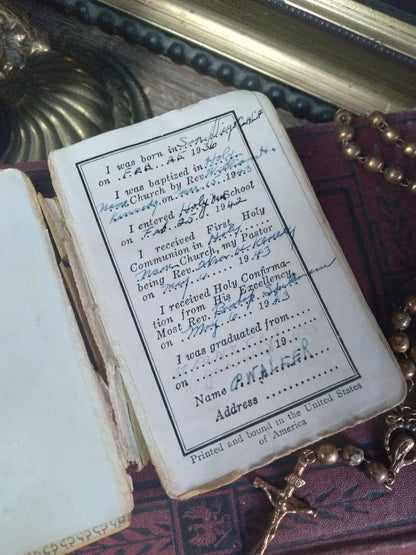 I was born in San Diego Calif
on Feb. 25. 1936
I was baptized in Holy
Name Church by Rev. William H.
Kennedy on 6. 1943
I entered Holy N School
on Feb. 20, 1942
I received First Holy
Communion in Holy
Name Church, my Pastor
being Rev. H. Kennedy
on May 6. 1943
I received Holy Confirma-
tion from His Excellency,
Most Rev. Bishop
on May 6 1943
I was graduated from
on 19
Name P. WALKER
Address
Printed and bound in the United States
of America